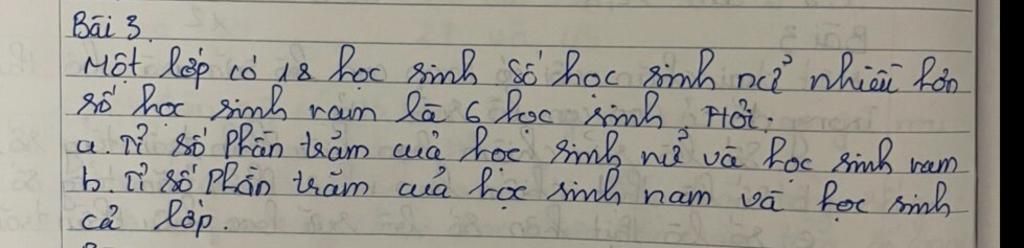 Bài 3.
Một lớp có 18 học sinh số học sinh nữ nhiều hơn
số học sinh nam là 6 học sinh. Hỏi:
a. Tỉ số phần trăm của học sinh nữ và học sinh nam
b. Tỉ số phần trăm của học sinh nam và học sinh
cả lớp.